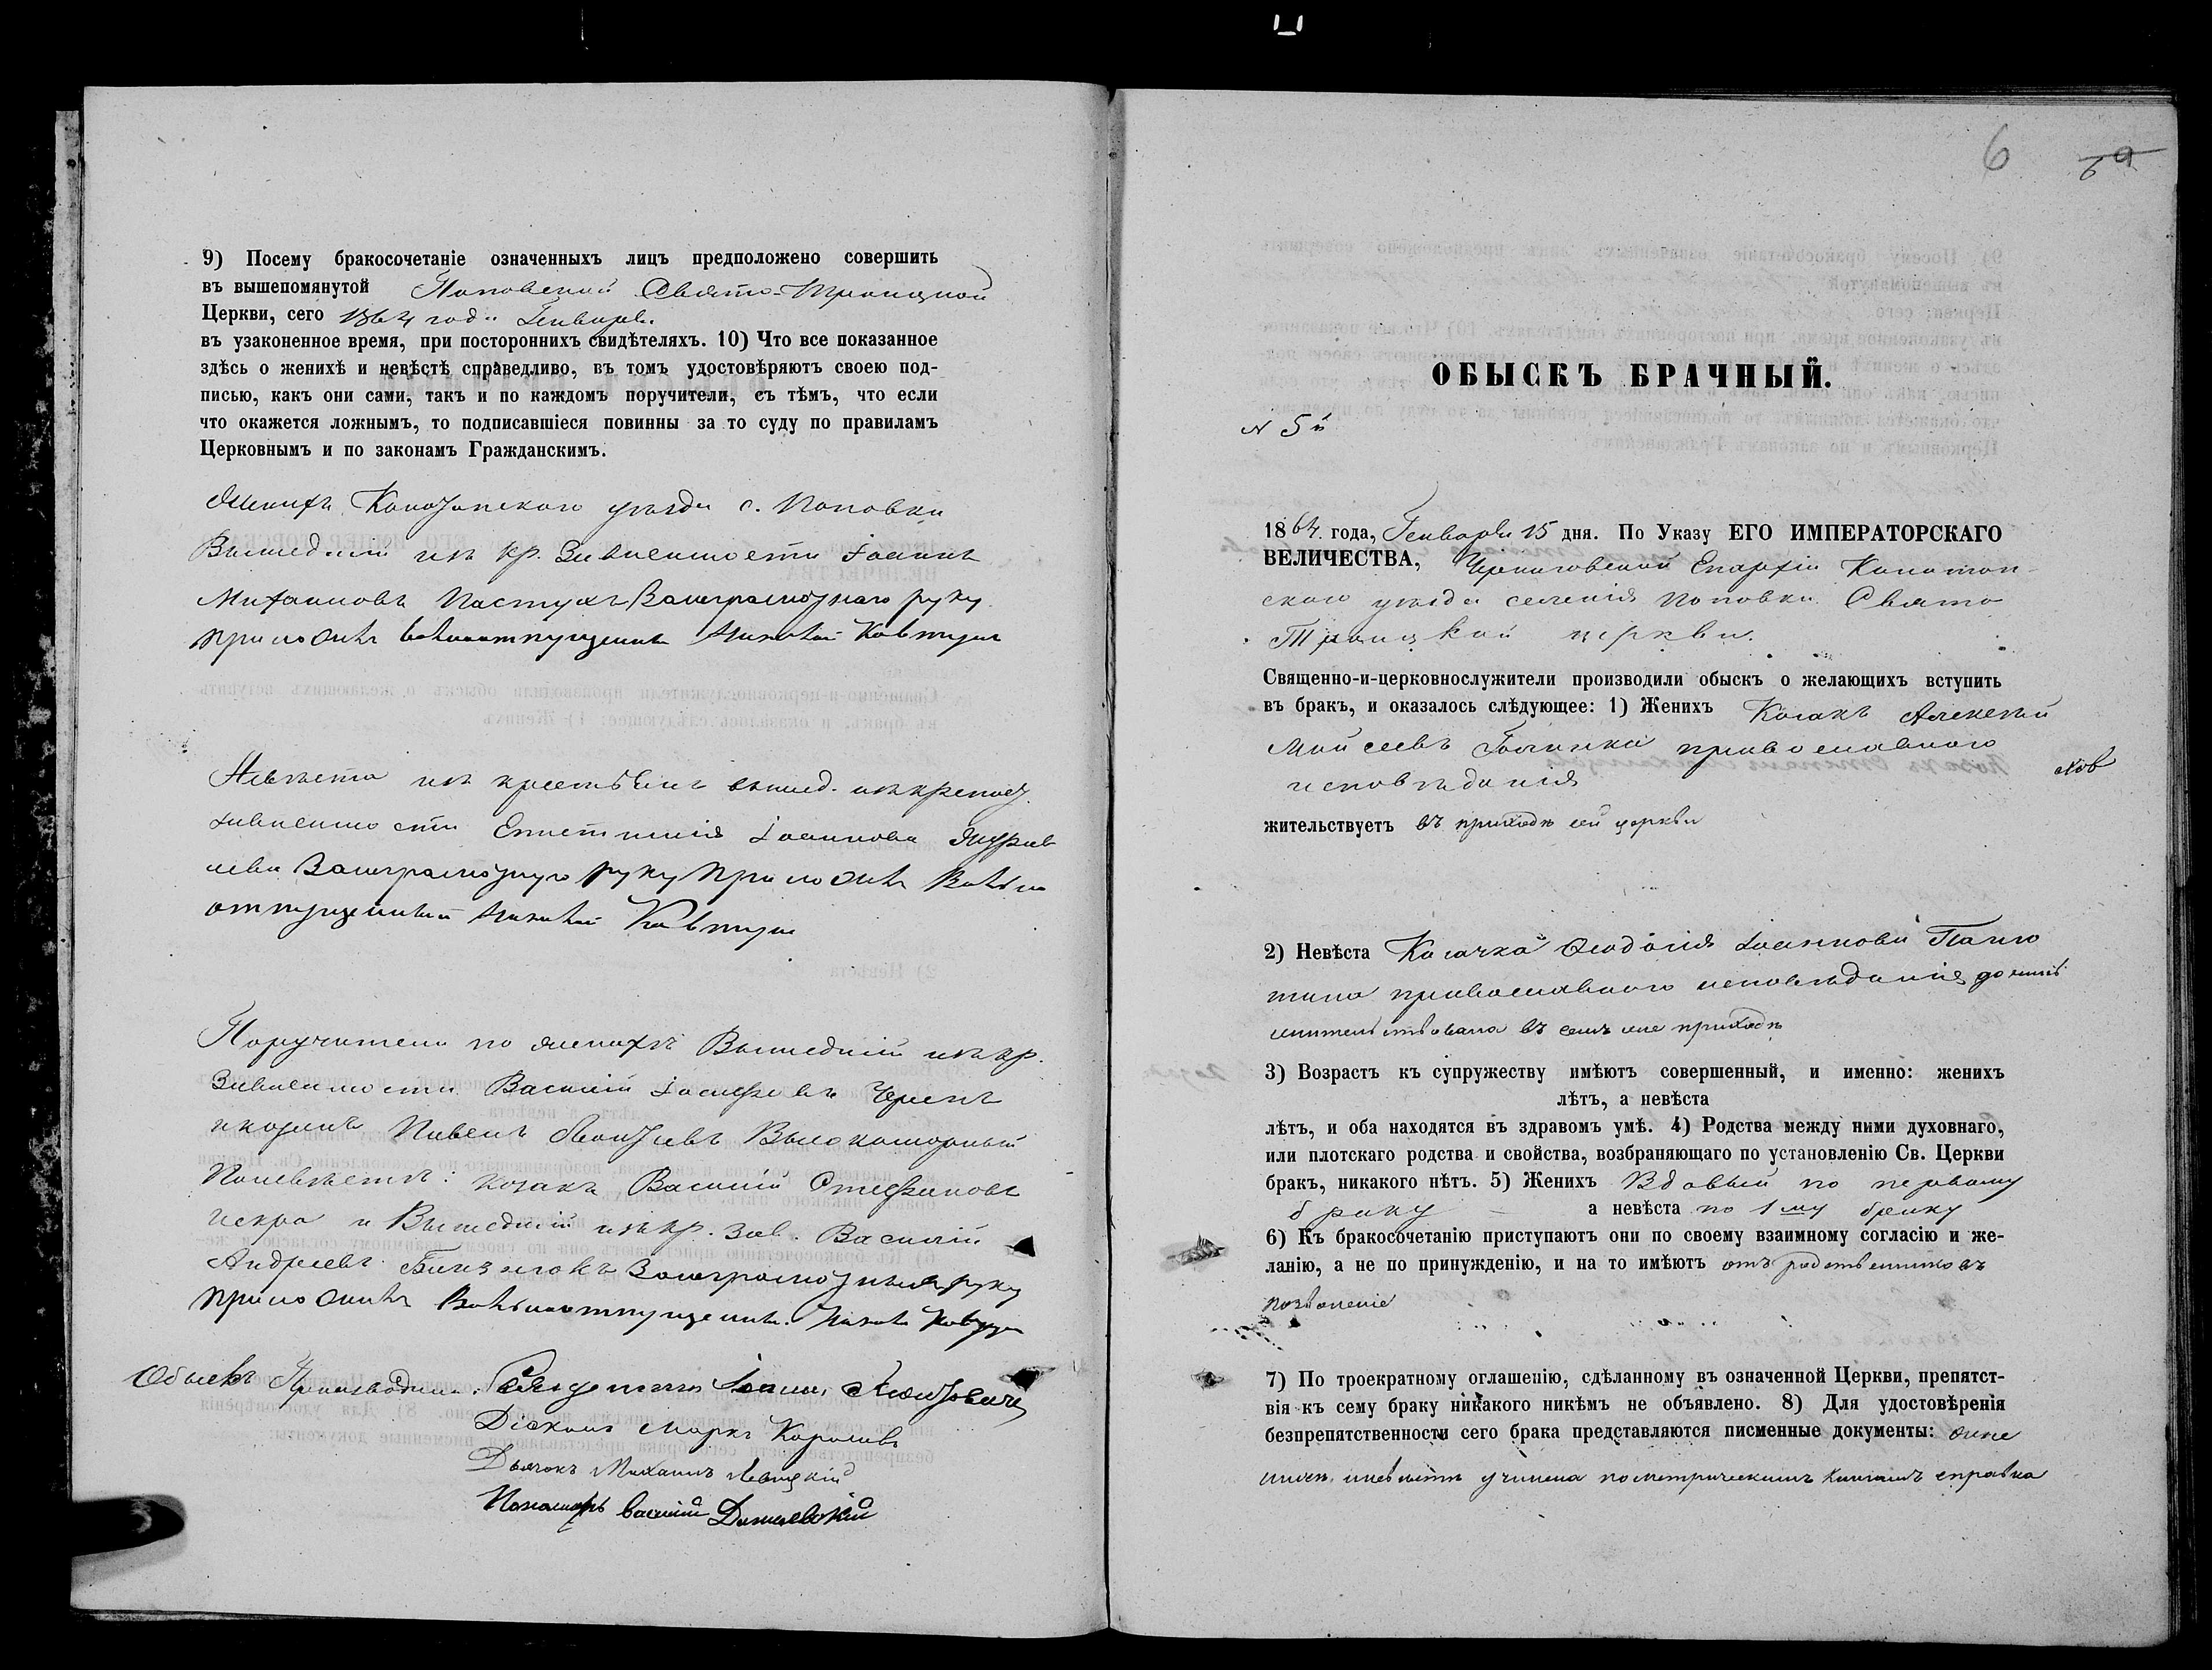 9) Посему бракосочетаніе означенныхъ лицъ предположено совершить
въ вышепомянутой Поповской Свято-Троицкой
Церкви, сего 1864 года Генваря
въ узаконенное время, при постороннихъ свидѣтеляхъ. 10) Что все показанное
здѣсь о женихѣ и невѣстѣ справедливо, въ томъ удостовѣряютъ своею под-
писью, какъ они сами, такъ и по каждомъ поручители, съ тѣмъ, что если
что окажется ложнымъ, то подписавшіеся повинны за то суду по правиламъ
Церковнымъ и по законамъ Гражданскимъ.
Женихъ Конотопского уѣзда с. Поповки
Вышедшій изъ кр. Зависимости Іоаннъ
Михаиловъ Пастухъ руку
приложилъ вольноотпущенный Кавтун
Невѣста изъ крестьянъ вышед. изъ крепос.
зависимости Епистимія Іоаннова
руку приложилъ Вольно
отпущенный Кавтун
Поручители по женихѣ Вышедшій изъ кр.
Зависимости Василій Іосифовъ
козакъ Павелъ Леонтіевъ
По невѣстѣ: козакъ Василій Стефановъ
Искра и Вышедшій изъ кр. зав. Василій
Андреевъ руку
приложилъ Вольноотпущенный
Обыскъ Производили: Священникъ Іоаннъ
Діаконъ Маркъ Королевъ
Дьячокъ Михаилъ Левицкій
Пономарь Василій
6 6 а
ОБЫСКЪ БРАЧНЫЙ.
N 5й
1864 года, Генваря 15 дня. По Указу ЕГО ИМПЕРАТОРСКАГО
ВЕЛИЧЕСТВА, Черниговской Епархіи Конотоп-
ского уѣзда селенія Поповки Свято
Троицкой церкви.
Священно-и-церковнослужители производили обыскъ о желающихъ вступить
въ бракъ, и оказалось слѣдующее: 1) Женихъ Козакъ Алексѣй
Мойсеевъ православного
исповѣданія
жительствуетъ въ приходѣ сей церкви
2) Невѣста Козачка Феодосія Іоаннова
православного исповѣданія донынѣ
жительствовала въ семъ же приходѣ
3) Возрастъ къ супружеству имѣютъ совершенный, и именно: женихъ
лѣтъ, а невѣста
лѣтъ, и оба находятся въ здравомъ умѣ. 4) Родства между ними духовнаго,
или плотскаго родства и свойства, возбраняющаго по установленію Св. Церкви
бракъ, никакого нѣтъ. 5) Женихъ Вдовый по первому
браку а невѣста по 1му браку
6) Къ бракосочетанію приступаютъ они по своему взаимному согласію и же-
ланію, а не по принужденію, и на то имѣютъ отъ родственниковъ
позволеніе
7) По троекратному оглашенію, сдѣланному въ означенной Церкви, препятст-
вія къ сему браку никакого никѣмъ не объявлено. 8) Для удостовѣренія
безпрепятственности сего брака представляются писменные документы: о
учинена по метрическимъ книгамъ справка